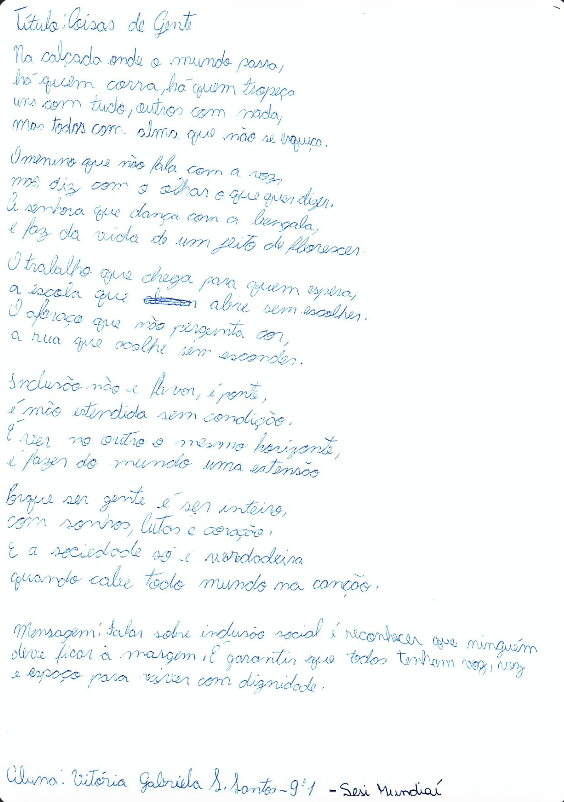 Título: Coisas de Gente
Na calçada onde o mundo passa,
há quem corra, há quem tropeça
uns com tudo, outros com nada,
mas todos com alma que não se esqueça.
O menino que não fala com a voz,
mas diz com o olhar o que quer dizer.
A senhora que dança com a bengala,
e faz da vida de um jeito de florescer.
O trabalho que chega para quem espera,
a escola que abre sem escolher.
O abraço que não pergunta cor,
a rua que acolhe sem esconder.
Inclusão não e favor, é ponte,
é mão estendida sem condição.
É ver no outro o mesmo horizonte,
é fazer do mundo uma extensão
Porque ser gente é ser inteiro,
com sonhos, lutas e coração.
E a sociedade só é verdadeira
quando cabe todo mundo na canção.
Mensagem: Falar sobre inclusão social é reconhecer que ninguém
deve ficar à margem. É garantir que todos tenham voz, vez
e espaço para viver com dignidade.
Aluna: Vitória Gabriela S. Santos - 9º1 - Sesi Mundiaí